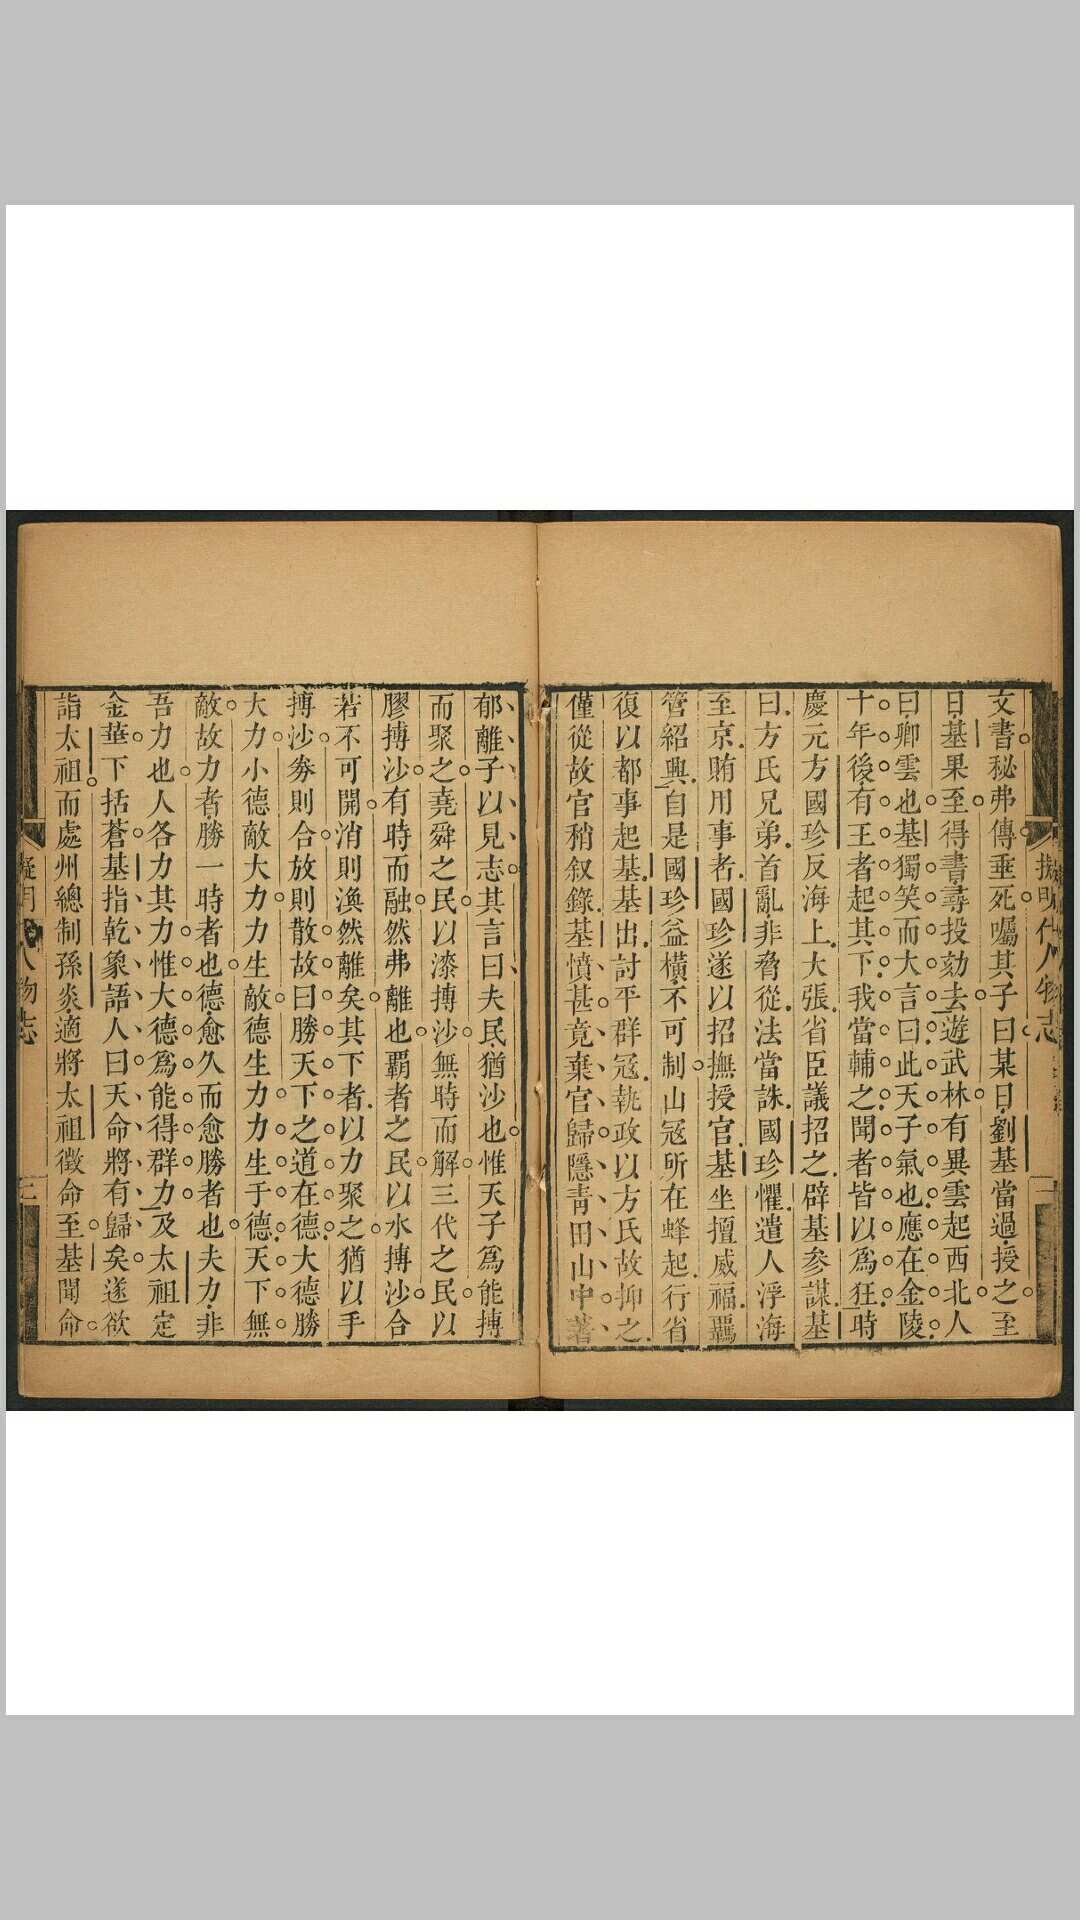 擬明代人物志
文書秘弗傳垂死囑其子曰某日劉基當過授之至
日基果至得書尋投劾去遊武林有異雲起西北人
曰卿雲也基獨笑而大言曰此天子氣也應在金陵
十年後有王者起其下我當輔之聞者皆以爲狂時
慶元方國珍反海上大張省臣議招之辟基參謀基
曰方氏兄弟首亂非脅從法當誅國珍懼遣人浮海
至京賄用事者國珍遂以招撫授官基坐擅威福羈
管紹興自是國珍益橫不可制山寇所在蜂起行省
復以都事起基基出討平群寇執政以方氏故抑之
僅從故官稍叙錄基憤甚竟棄官歸隱青田山中著
郁離子以見志其言曰夫民猶沙也惟天子爲能摶
而聚之堯舜之民以漆摶沙無時而解三代之民以
膠摶沙有時而融然弗離也覇者之民以水摶沙合
若不可開消則渙然離矣其下者以力聚之猶以手
摶沙劵則合放則散故曰勝天下之道在德大德勝
大力小德敵大力力生敵德生力力生于德天下無
敵故力者勝一時者也德愈久而愈勝者也夫力非
吾力也人各力其力惟大德爲能得群力及太祖定
金華下括蒼基指乾象語人曰天命將有歸矣遂欲
詣太祖而處州總制孫炎適將太祖徵命至基聞命
擬明代人物志
三